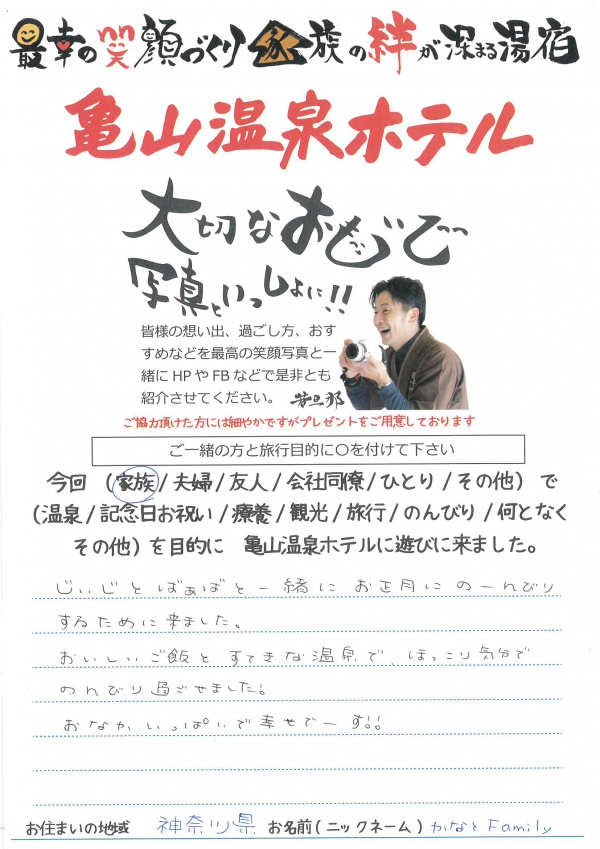 最幸の笑顔づくり 家族の絆が深まる湯宿
亀山温泉ホテル
大切なおもいで
写真といっしょに!!
皆様の想い出、過ごし方、おす
すめなどを最高の笑顔写真と一
緒に HP や FB などで是非とも
紹介させてください。 若旦那
ご協力頂けた方には細やかですがプレゼントをご用意しております
ご一緒の方と旅行目的に〇を付けて下さい
今回 (家族/夫婦/友人/会社同僚/ひとり/その他) で
(温泉/記念日お祝い/療養/観光/旅行/のんびり/何となく
その他) を目的に 亀山温泉ホテルに遊びに来ました。
じぃじとばぁばと一緒にお正月にのーんびり
するために来ました。
おいしいご飯とすてきな温泉で、ほっこり気分で
のんびり過ごせました!
おなかいっぱいで幸せでーす!!
お住まいの地域 神奈川県 お名前(ニックネーム) かなと Family